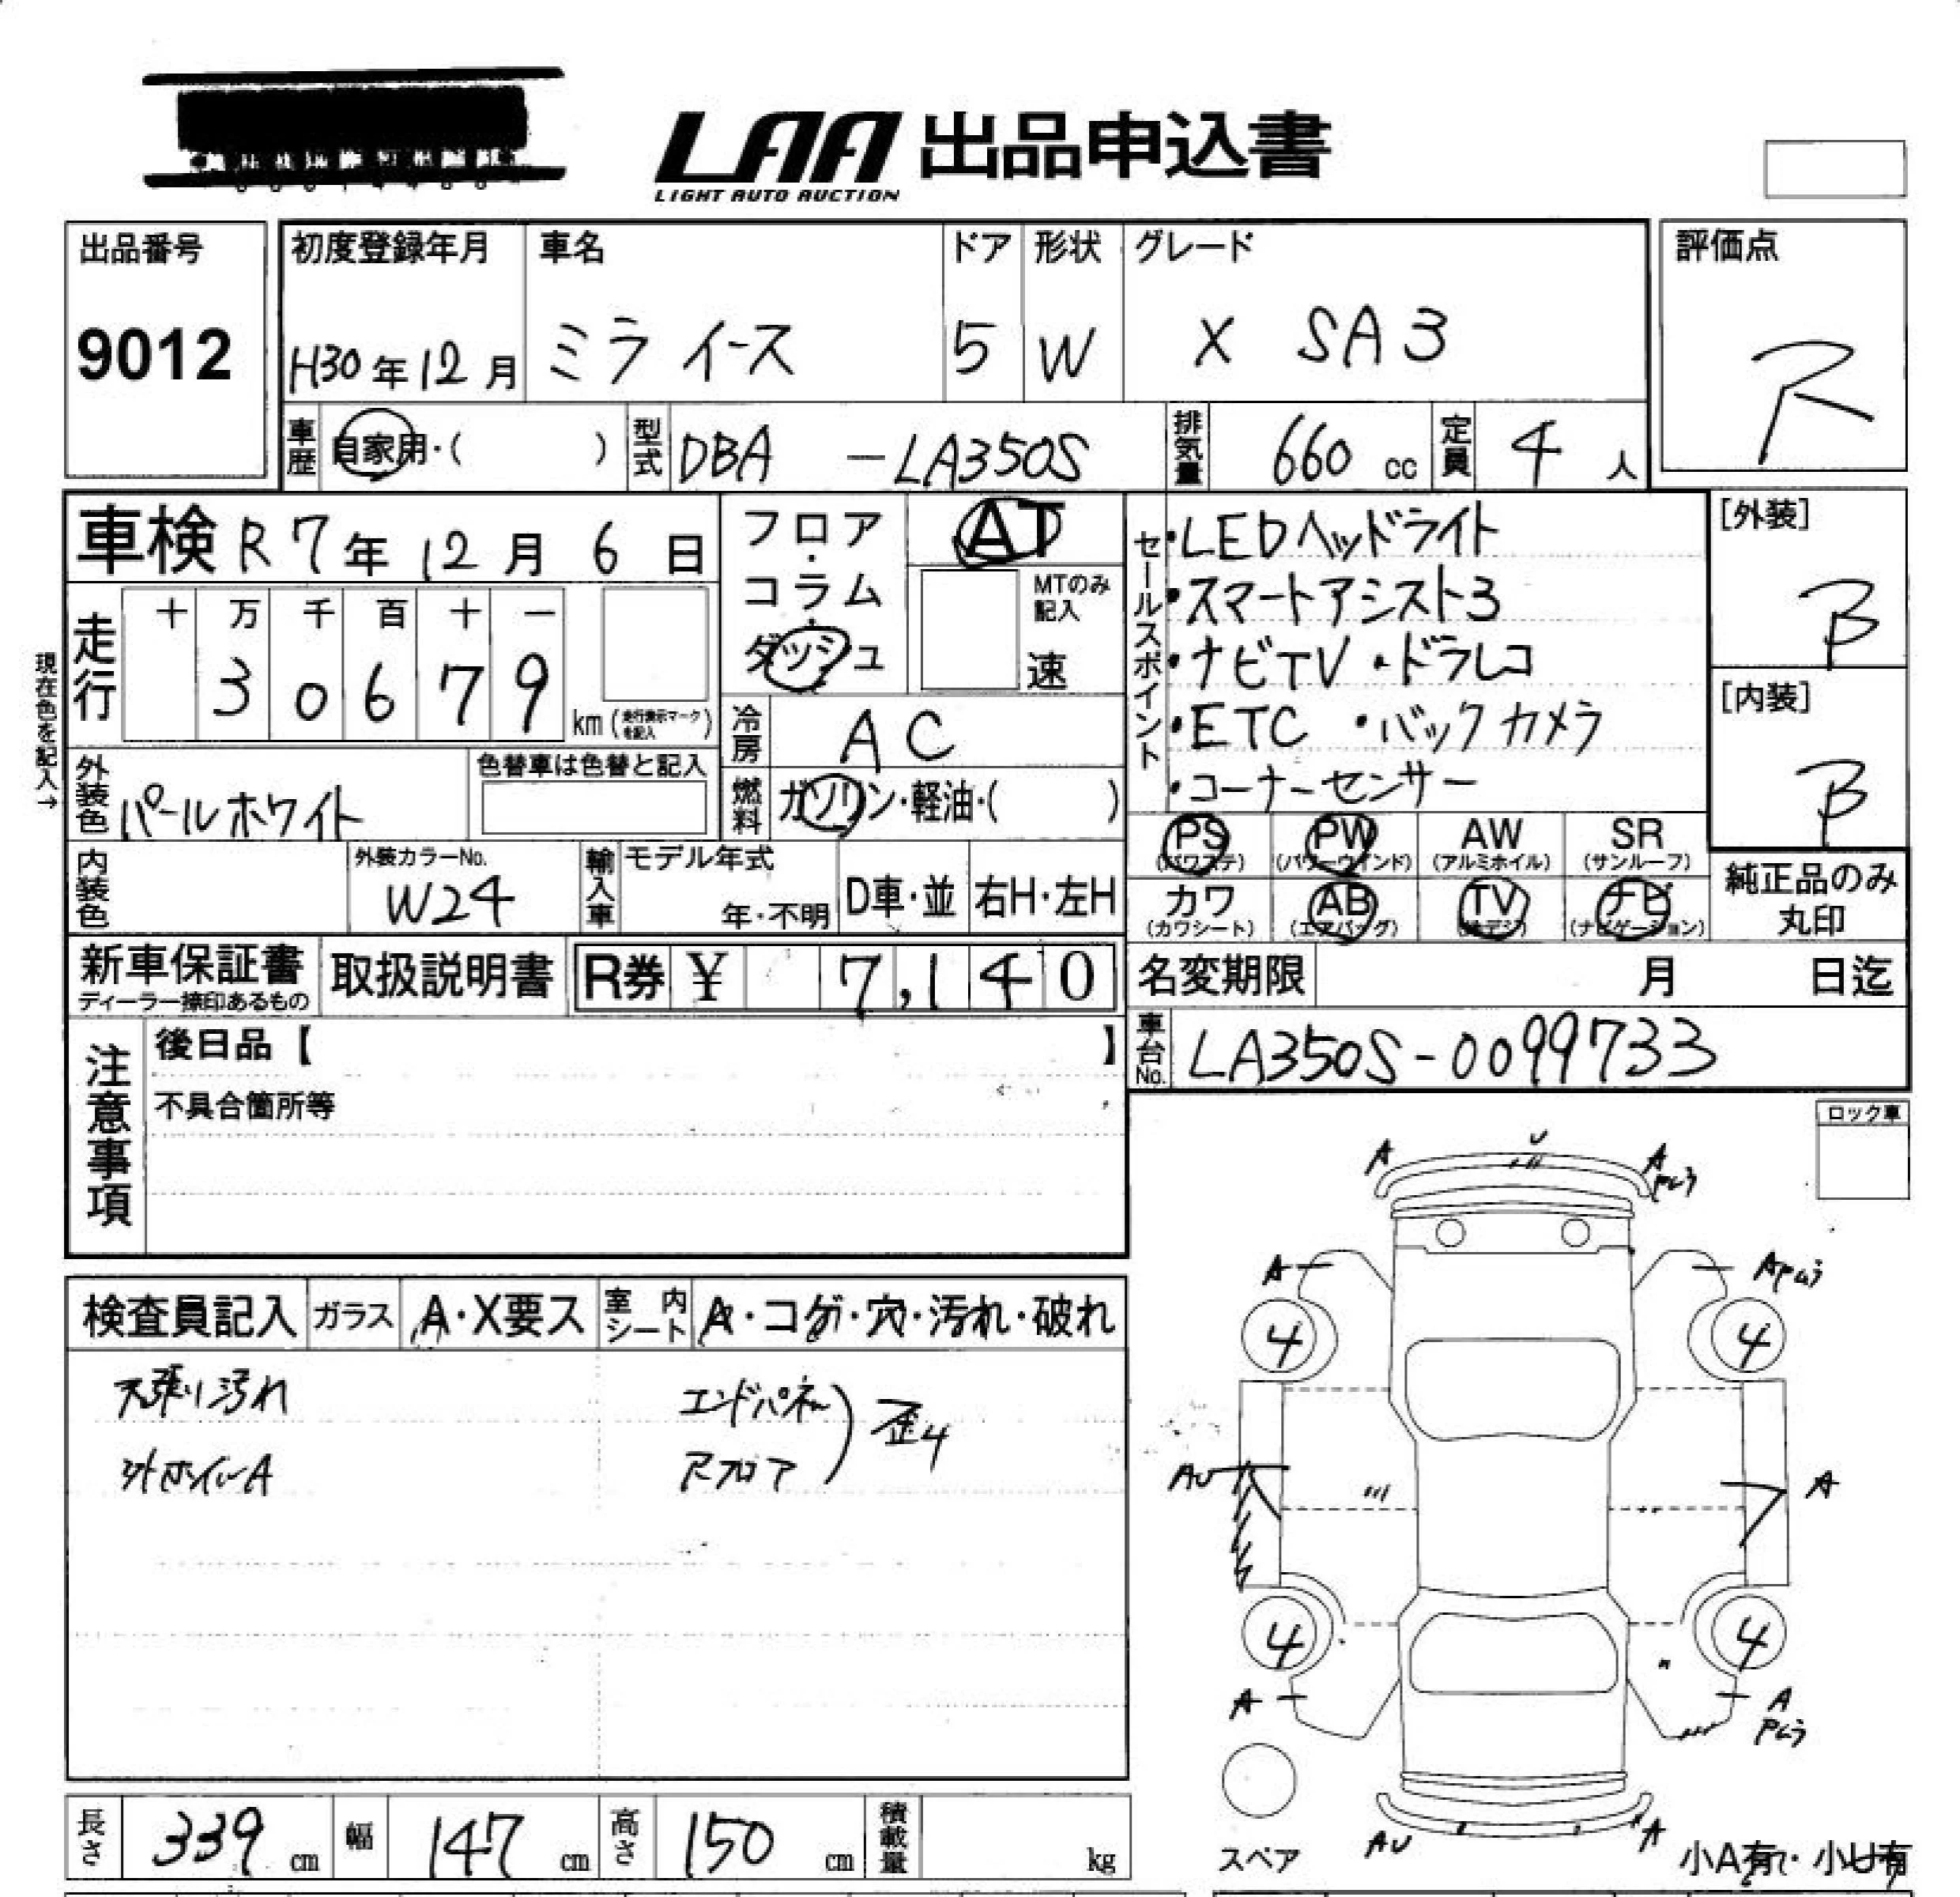 LAA 出品申込書
LIGHT AUTO AUCTION
出品番号
9012
初度登録年月
H30年12月
車名
ミライース
ドア
5
形状
W
グレード
X SA3
評価点
R
車歴 自家用・( )
型式 DBA -LA350S
排気量 660 cc
定員 4 人
車検 R7年12月6日
フロア・コラム・ダッシュ
AT
MTのみ記入
速
セールスポイント
・LEDヘッドライト
・スマートアシスト3
・ナビTV ・ドラレコ
・ETC ・バックカメラ
・コーナーセンサー
[外装]
B
[内装]
B
現在色を記入→
走行
十 万 千 百 十 一
3 0 6 7 9
km (走行表示マークを記入)
冷房 AC
燃料 ガソリン・軽油・( )
外装色 パールホワイト
色替車は色替と記入
PS (パワステ)
PW (パワーウインド)
AW (アルミホイル)
SR (サンルーフ)
カワ (カワシート)
AB (エアバッグ)
TV (地デジ)
ナビ (ナビゲーション)
純正品のみ丸印
内装色
外装カラーNo.
W24
輸入車
モデル年式
年・不明
D車・並
右H・左H
新車保証書
ディーラー捺印あるもの
取扱説明書
R券 ¥ 7,140
名変期限 月 日迄
車台No. LA350S-0099733
注意事項
後日品【 】
不具合箇所等
ロック車
検査員記入
ガラス A・X要ス
室内シート A・コゲ・穴・汚れ・破れ
天張り汚れ
外ホイルA
エンドパネル
Rフロア
歪4
A U A
Pムラ
A APムラ
4 4
AU A
4 4
A A
Pムラ
AU A
スペア
小A有・小U有
長さ 339 cm
幅 147 cm
高さ 150 cm
積載量 kg